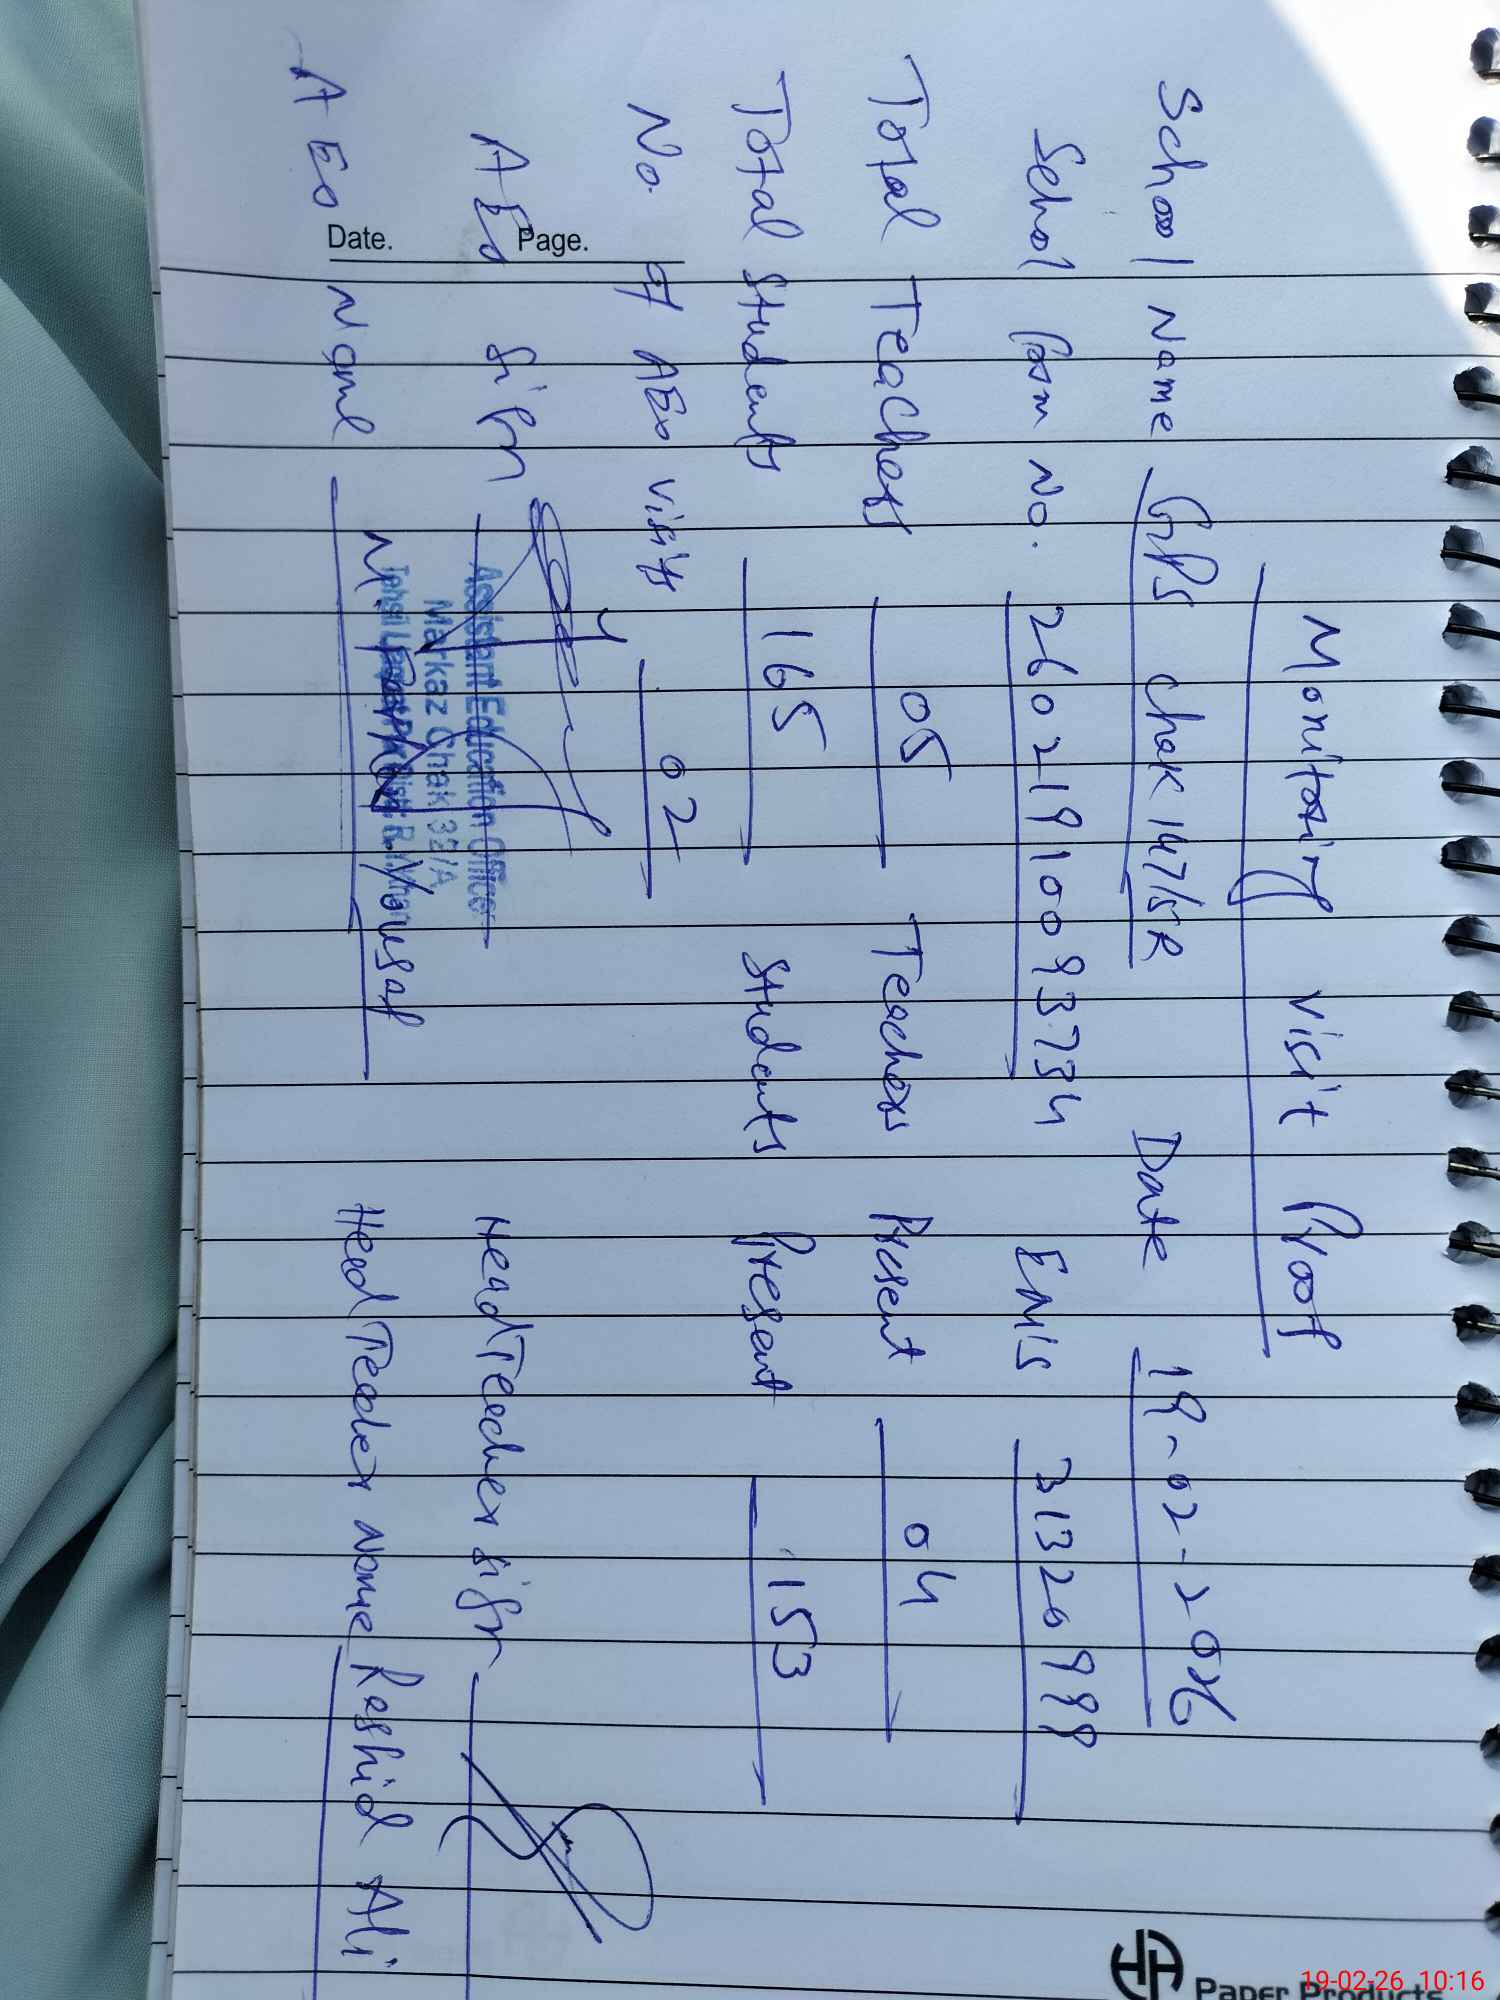 Monitoring visit Proof
School Name GPS Chak 147/5R Date 19-02-2026
School Com No. 26021910093734 Emis 31320998
Total Teachers 05 Teachers Present 04
Total Students 165 Students Present 153
No. of AEO visits 02
AEO Sign Head Teacher sign
Assistant Education Officer
Markaz Chak 32/A
AEO Name Yousaf Head Teacher Name Rashid Ali
Date. Page.
Paper Products
19-02-26 10:16